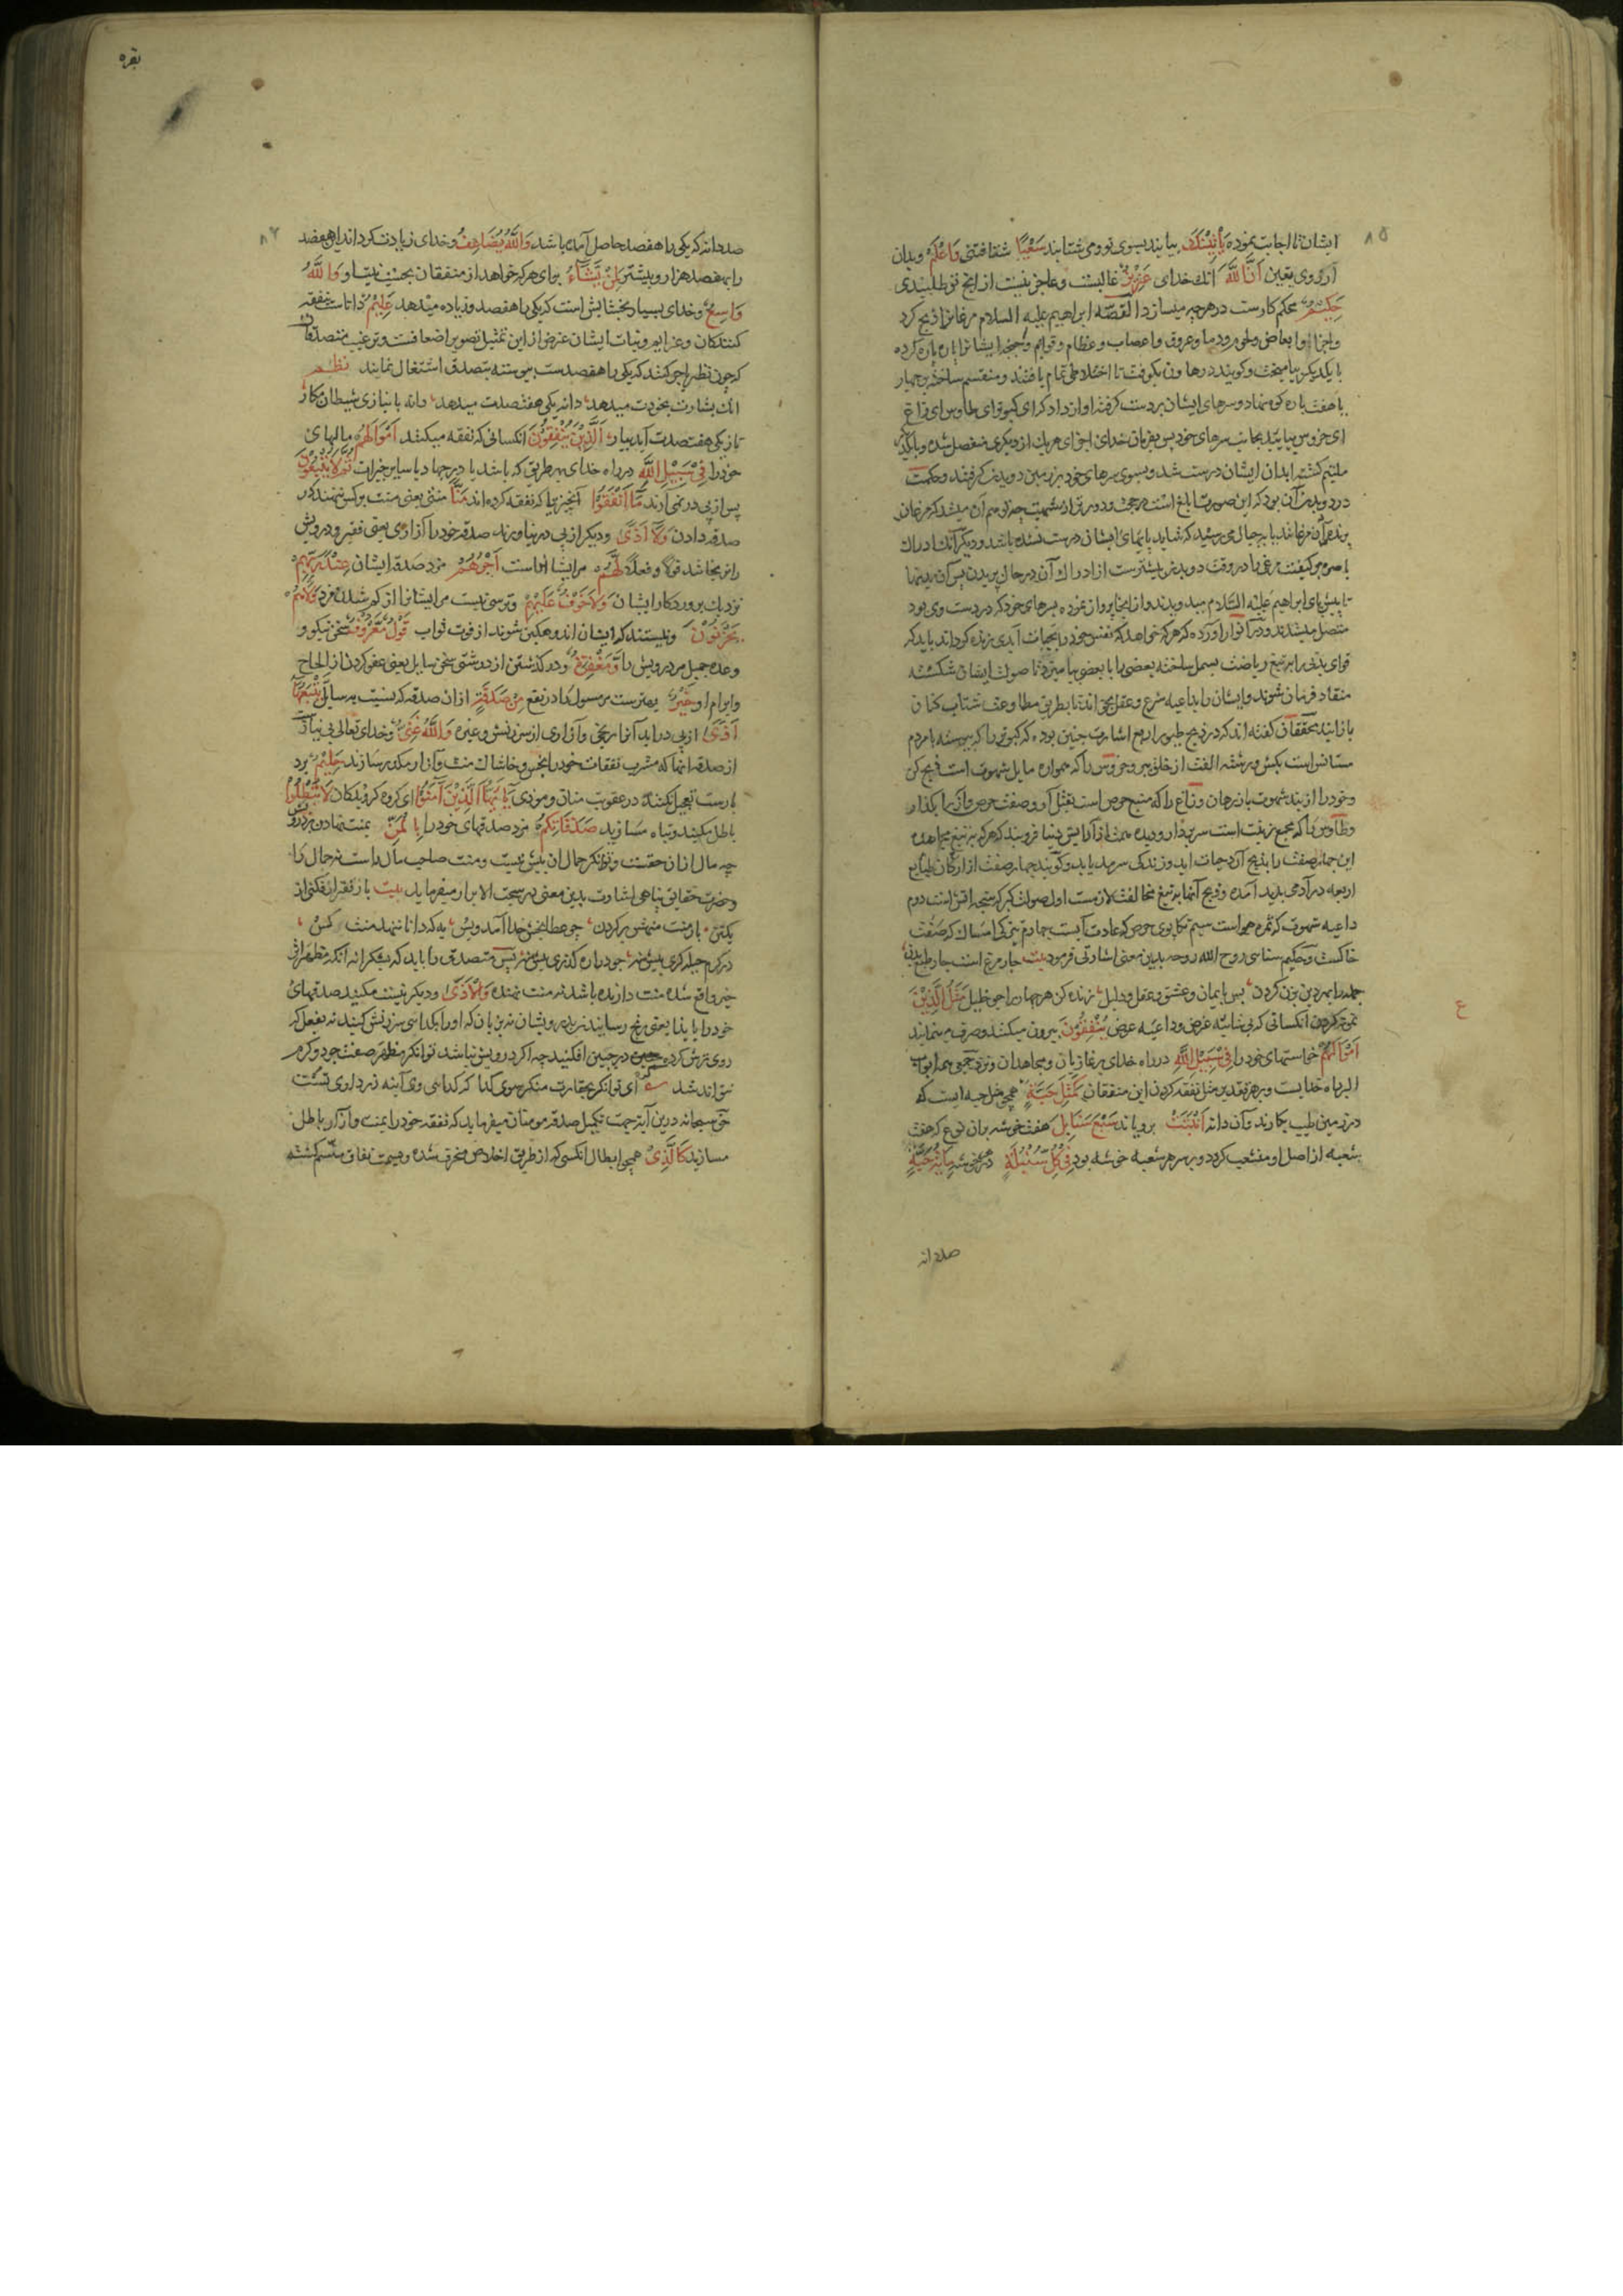 ۸۵
ایشان ترا اجابت نموده یَأْتِینَکَ بیایند بسوی تو و می شتابند سَعْیًا شتافتنی وَاعْلَمْ و بدان
از روی یقین اَنَّ اللّٰهَ آنکه خدای عَزِیزٌ غالبست و عاجز نیست از آنچه تو طلبیدی
حَکِیمٌ محکم کارست در هرچه میسازد القصّه ابراهیم علیه السلام مرغانرا ذبح کرد
و اجزا و ابعاض و لحوم و دما و عروق و اعصاب و عظام و قوایم و اجنحه ایشانرا پاره پاره کرده
با یکدیگر بیامیخت و گویند در هاون بکوفت تا اختلاطی تمام یافتند و منقسم ساخته بر چهار
یا هفت پاره کوه نهاد و سرهای ایشان بر دست گرفت و آواز داد که ای کبوتر و ای طاوس ای زاغ
ای خروس بیایید بجانب سرهای خود پس بفرمان خدای اجزای هر یک از دیگری منفصل شده و با یکدیگر
ملتیم گشت ابدان ایشان درست شد و بسوی سرهای خود بر زمین دویدن گرفتند و حکمت
در دویدن آن بود که این صورت ابلغ است در حجت و دورتر از شبهت چه توهم آن میشد که مرغان
پرنده آن مرغانند یا بخیال می رسید که شاید پایهای ایشان درست نشده باشد و دیگر آنکه ادراک
باصره مر کیفیت مرغی را در وقت دویدن بیشترست از ادراک آن در حال پریدن پس آن بدنها
تا پیش پای ابراهیم علیه السلام میدویدند و از آنجا پرواز نموده بسرهای خود که در دست وی بود
متصل میشدند و در انوار آورده که هر که خواهد که نفس خود را بحیات ابدی زنده گرداند باید که
قوای بدنی را بر تیغ ریاضت بسمل ساخته بعضی را با بعضی بیامیزد تا صولت ایشان شکسته
منقاد فرمان شوند و ایشان را بداعیه شرع و عقل بخواند تا بطریق مطاوعت شتاب کنان
باز آیند محققان گفته اند که در ذبح طیور اربع اشارت چنین بوده که کبوتر را که پیوسته با مردم
مستانس است بکش و رشته الفت از خلق ببر و خروس را که همواره مایل شهوت است ذبح کن
و خود را از بند شهوت باز رهان و زاغ را که منبع حرص است بقتل آر و صفت حرص و آز را بگذار
و طاوس را که مجمع زینت است سر بردار و دیده همت از آرایش دنیا فرو بند که هر که بر تیغ مجاهده
این چهار صفت را بذبح آرد حیات ابد و زندگی سرمد یابد و گویند چهار صفت از ارکان طبایع
اربعه در آدمی پدید آمده و ذبح آنها بر تیغ مخالفت لازمست اول صولت کبر که نتیجه آتش است دوم
داعیه شهوت که ثمره هواست سیم تکاپوی حرص که عادت آبست چهارم تیرگی امساک که صفت
خاکست و حکیم سنایی روح الله روحه بدین معنی اشارتی فرمود بیت چار مرغ است چار طبع بدن
جمله را بهر دین بزن گردن پس بایمان و عشق و عقل و دلیل زنده کن هر چهار را چو خلیل مَثَلُ الَّذِینَ
نموده کردن آنکسانی که بی شایبه غرض و داعیه عوض یُنْفِقُونَ بیرون میکنند و صرف مینمایند
اَمْوَالَهُمْ خواستهای خود را فِی سَبِیلِ اللّٰهِ در راه خدای بر غازیان و مجاهدان و نزد جمعی همه ابواب
البر راه خدایست و بر هر تقدیر مثل نفقه کردن این منفقان کَمَثَلِ حَبَّةٍ همچو مثل حبه ایست که
در زمین طیب بکارند و آن دانه اَنْبَتَتْ برویاند سَبْعَ سَنَابِلَ هفت خوشه بدان نوع که هفت
شعبه از اصل او منشعب گردد و بر سر هر شعبه خوشه بود فِی کُلِّ سُنْبُلَةٍ در هر خوشه مِائَةُ حَبَّةٍ
ع
صد دانه
بقره
صد دانه که یکی را هفصد حاصل آمده باشد وَاللّٰهُ یُضَاعِفُ و خدای زیادت گرداند این هفصد
را بهفصد هزار و بیشتر لِمَنْ یَشَاءُ برای هر که خواهد از منفقان بحسب نیت او وَاللّٰهُ
وَاسِعٌ و خدای بسیار بخشایش است که یکی را هفصد و زیاده میدهد عَلِیمٌ داناست بنفقه
کنندگان و عزایم و نیات ایشان غرض از این تمثیل تصویر اضعافست و ترغیب متصدقان
که چون نظر باجر کنند که یکی را هفصدست پیوسته بتصدق اشتغال نمایند نظم
آنک بشارت بخودت میدهد دانه یکی هفتصدت میدهد دانه بانبازی شیطان مکار
تا ز یکی هفتصدت آید ببار اَلَّذِینَ یُنْفِقُونَ آنکسانی که نفقه میکنند اَمْوَالَهُمْ مالهای
خود را فِی سَبِیلِ اللّٰهِ در راه خدای بهر طریق که باشد یا در جهاد یا سایر خیرات ثُمَّ لَا یُتْبِعُونَ
پس از پی در نمی آرند مَا اَنْفَقُوا آنچیزیرا که نفقه کرده اند مَنًّا منتی یعنی منت بر کس ننهند که در
صدقه دادن وَلَا اَذًی و دیگر از پی در نیاورند صدقه خود را آزاری یعنی فقیر و درویش
را نرنجاند قولا و فعلا لَهُمْ مر ایشانراست اَجْرُهُمْ مزد صدقه ایشان عِنْدَ رَبِّهِمْ
نزدیک پروردگار ایشان وَلَا خَوْفٌ عَلَیْهِمْ و ترسی نیست مر ایشانرا از کم شدن مزد وَلَا هُمْ
یَحْزَنُونَ و نیستند که ایشان اندوهگین شوند از فوت ثواب قَوْلٌ مَعْرُوفٌ سخن نیکو و
وعده جمیل مر درویش را وَمَغْفِرَةٌ و در گذشتن از درشتی سخن سایل یعنی عفو کردن از الحاح
و ابرام او خَیْرٌ بهترست مر مسول را در نفع مِنْ صَدَقَةٍ از آن صدقه که بنسبت بر سایل یَتْبَعُهَا
اَذًی از پی درآید آنرا رنجی و آزاری از سرزنش و غیره وَاللّٰهُ غَنِیٌّ و خدای تعالی بی نیازست
از صدقه آنها که مشرب نفقات خود را بخس و خاشاک منت و آزار مکدر سازند حَلِیمٌ برد
بارست تعجیل نکند در عقوبت منان و موذی یَا اَیُّهَا الَّذِینَ آمَنُوا ای گروه گرویدگان لَا تُبْطِلُوا
باطل مکنید و تباه مسازید صَدَقَاتِکُمْ مزد صدقهای خود را بِالْمَنِّ بمنت نهادن بر درویش
چه مال از آن حقست و توانگر حمال آن بیش نیست و منت صاحب مال راست نه حمال را
و حضرت حقایق پناهی اشارت بدین معنی در سبحة الابرار میفرماید بیت بار فقر ار فکنی از
یکتن بار منت منهش بر گردن چو عطا بخش خدا آمد و بس به که دانا ننهد منت کس
خیر واقع شده منت دار بنده باشد نه منت نهنده وَالْاَذَی و دیگر نیست مکنید صدقهای
خود را بایذا یعنی رنج رسانیدن بدرویشان نه بزبان که او را بگدایی سرزنش کنید نه بفعل که
روی ترش کرده چین در جبین افکنید چه اگر درویش نباشد توانگر مظهر صفت جود و کرم
نتواند شد ای توانگر بحقارت منگر سوی گدا که گدایی وی آیینه زرداری تست
حق سبحانه درین آیت جهت تکمیل صدقه مومنان میفرماید که نفقه خود را بمنت و آزار باطل
مسازید کَالَّذِی همچو ابطال آنکسی که از طریق اخلاص منحرف شده و بسمت نفاق متسم گشته